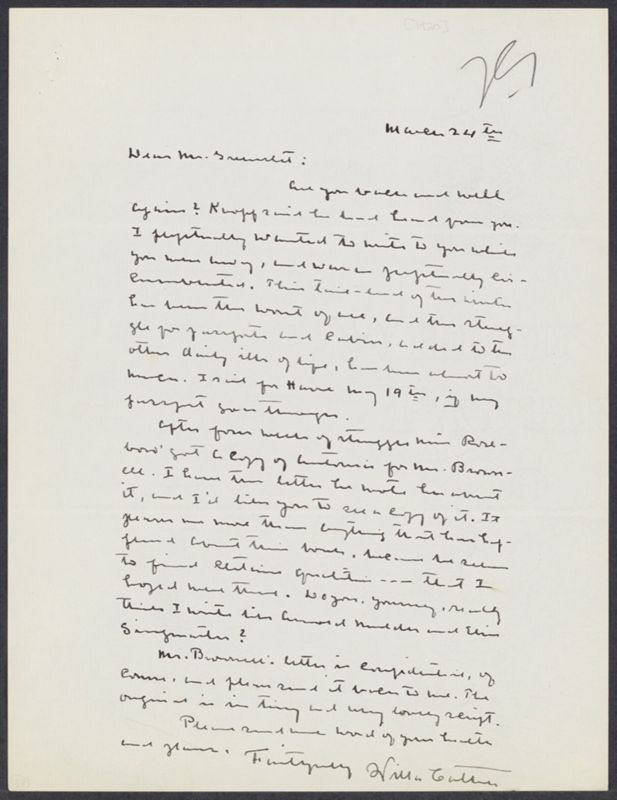 [1920]
March 24th
Dear Mr. Greenslet:
Are you back and well
again? Knopf said he had heard from you.
I perpetually wanted to write to you while
you were away, and was as perpetually cir-
cumvented. This tail-end of the winter
has been the worst of all, and the strug-
gle for passports and cabins, added to the
other daily ills of life, has been about too
much. I sail for Havre May 19th, if my
passport goes through.
After four weeks of struggle Miss Rose-
boro' got a copy of Antonia for Mr. Brown-
ell. I have the letter he wrote her about
it, and I'd like you to see a copy of it. It
pleases me more than anything that has hap-
pened about this book, because he seems
to find certain qualities --- that I
hoped were there. Do you, yourself, really
think I write like Harold Mudder and Elsie
Singmaster?
Mr. Brownell's letter is confidential, of
course, and please send it back to me. The
original is in tiny and very lovely script.
Please send me word of your health
and plans. Faithfully Willa Cather